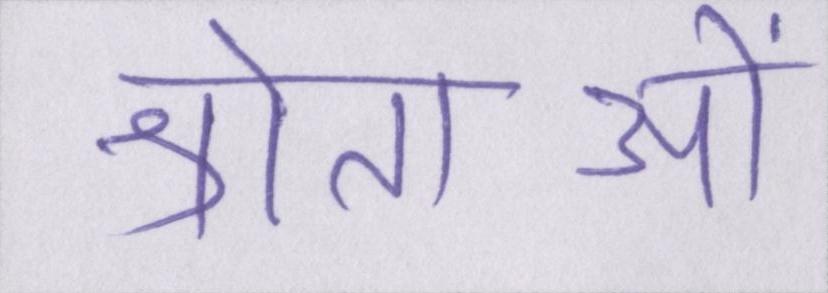 श्रोताओं